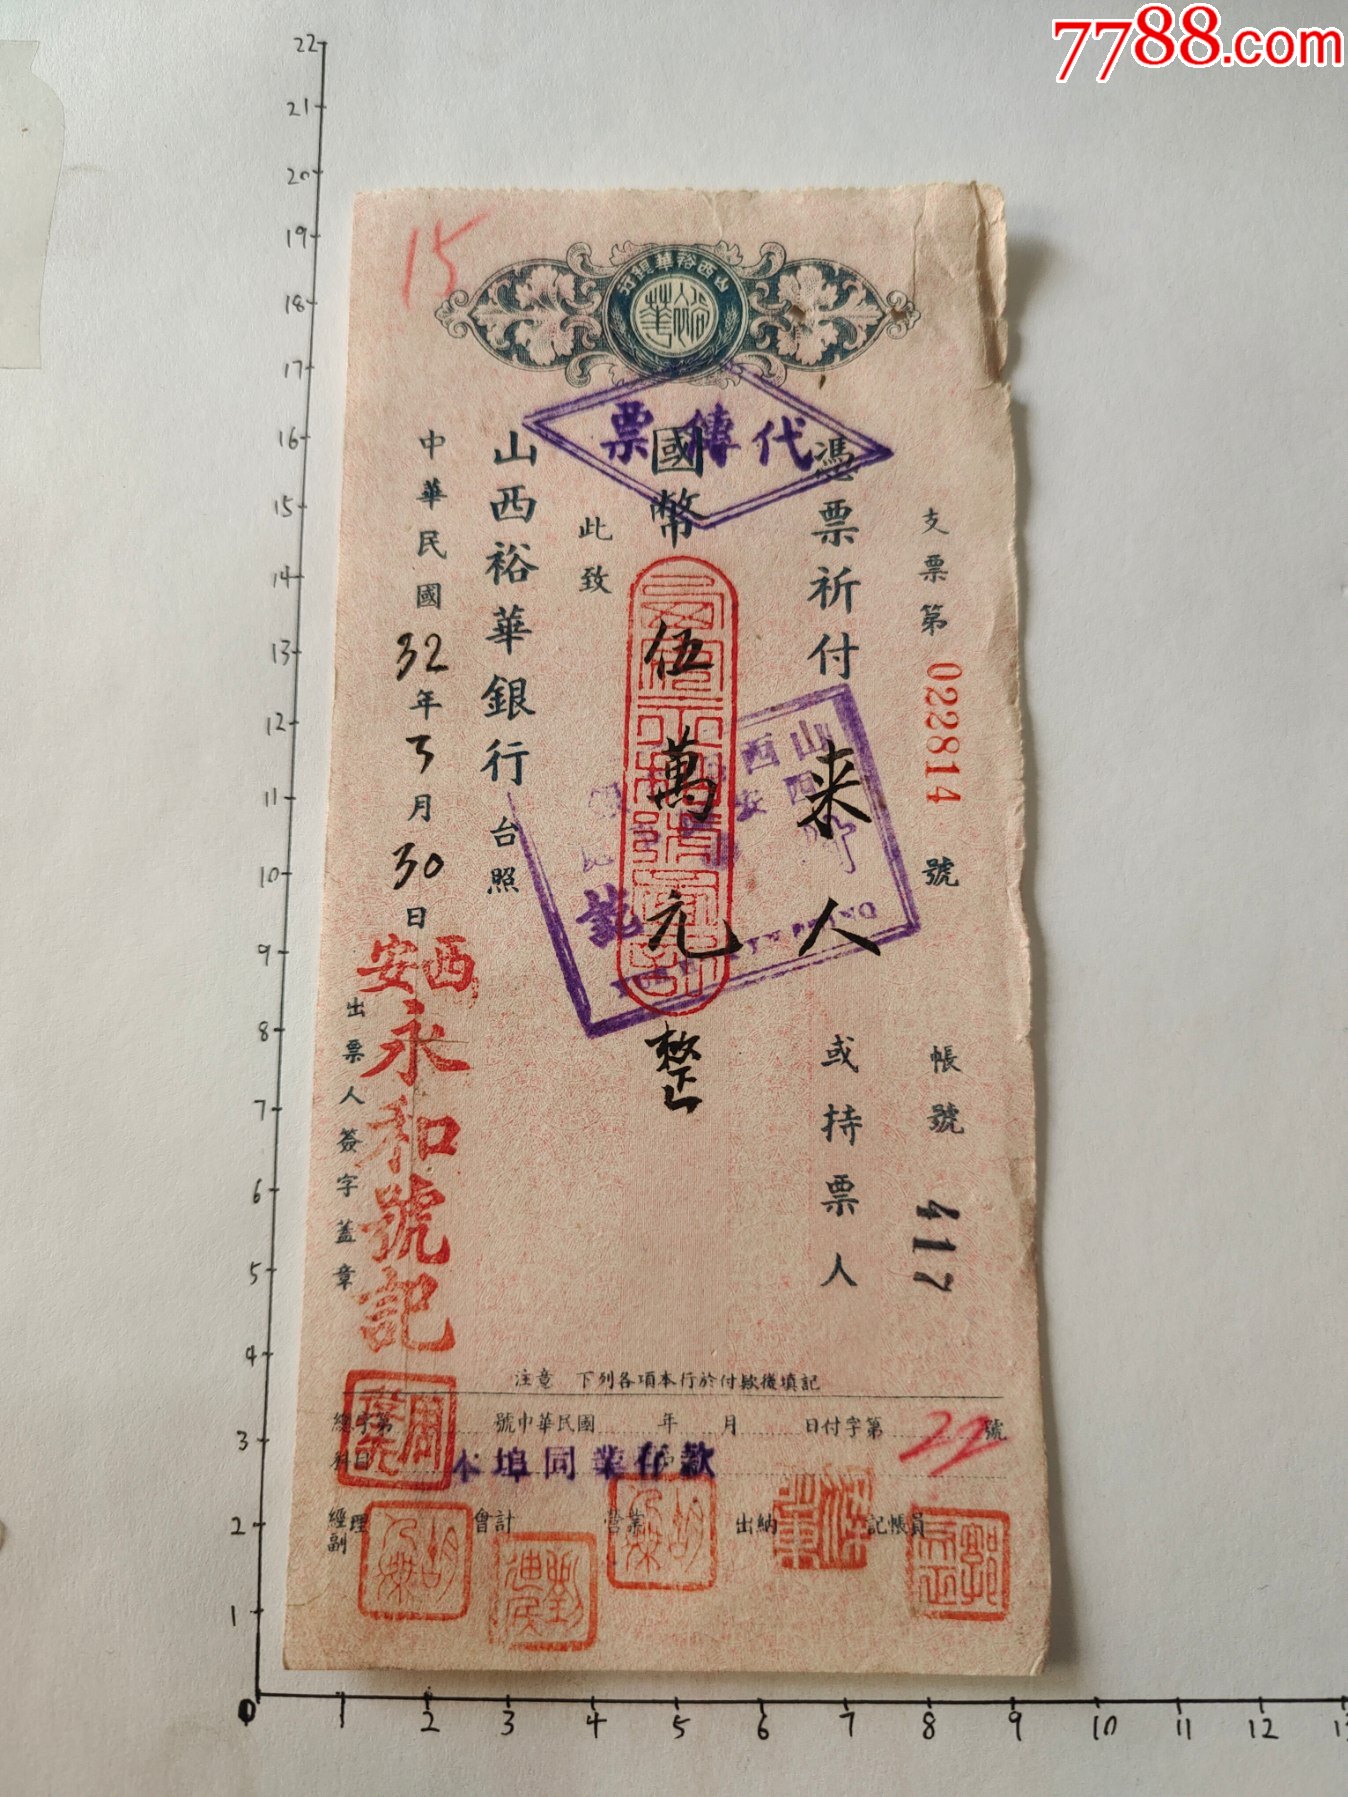 7788.com
15
山西裕華銀行
裕華
代傳票
支票第022814號 帳號 417
憑票祈付 来人 或持票人
國幣 伍萬元整
此致
山西裕華銀行 台照
中華民國32年3月30日
出票人簽字蓋章
西安
永和號記
山西
西安
記
注意 下列各項本行於付款後填記
總字第 號中華民國 年 月 日付字第 22 號
科目
本埠同業存款
經副理 會計 營業 出納 記帳員
22
21
20
19
18
17
16
15
14
13
12
11
10
9
8
7
6
5
4
3
2
1
0 1 2 3 4 5 6 7 8 9 10 11 12